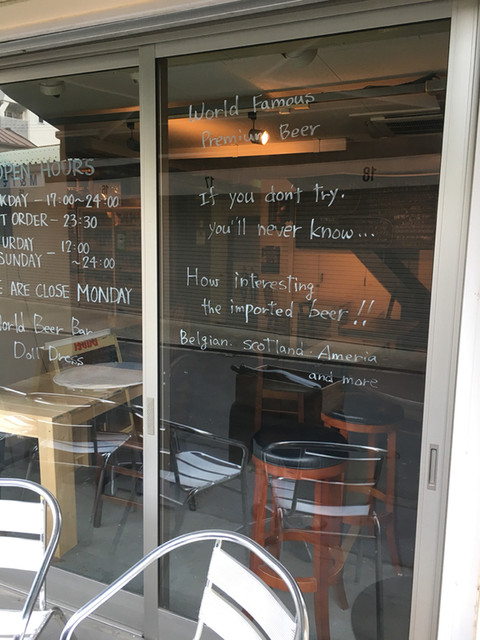 OPEN HOURS
KDAY - 17:00~24:00
T ORDER - 23:30
URDAY - 12:00
SUNDAY ~24:00
E ARE CLOSE MONDAY
World Beer Bar
Doll Dress
World Famous
Premium Beer
If you don't try.
you'll never know...
How interesting
the imported beer!!
Belgian. scotland. Ameria
and more